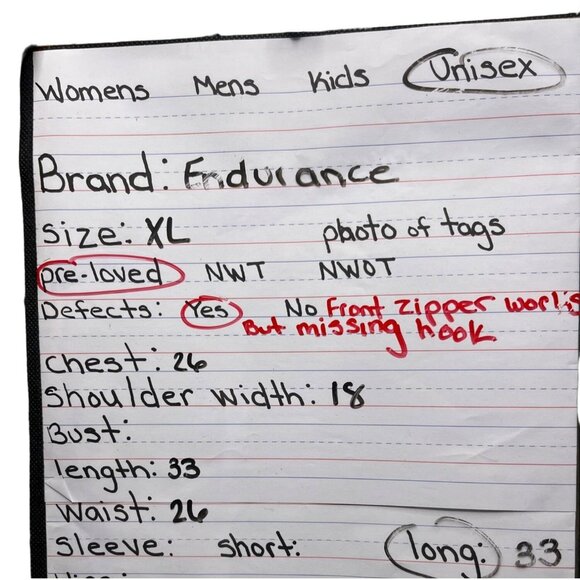 Womens Mens Kids Unisex
Brand: Endurance
Size: XL photo of tags
pre-loved NWT NWOT
Defects: Yes No Front zipper works
But missing hook
Chest: 26
Shoulder width: 18
Bust:
length: 33
Waist: 26
Sleeve: short: long: 33